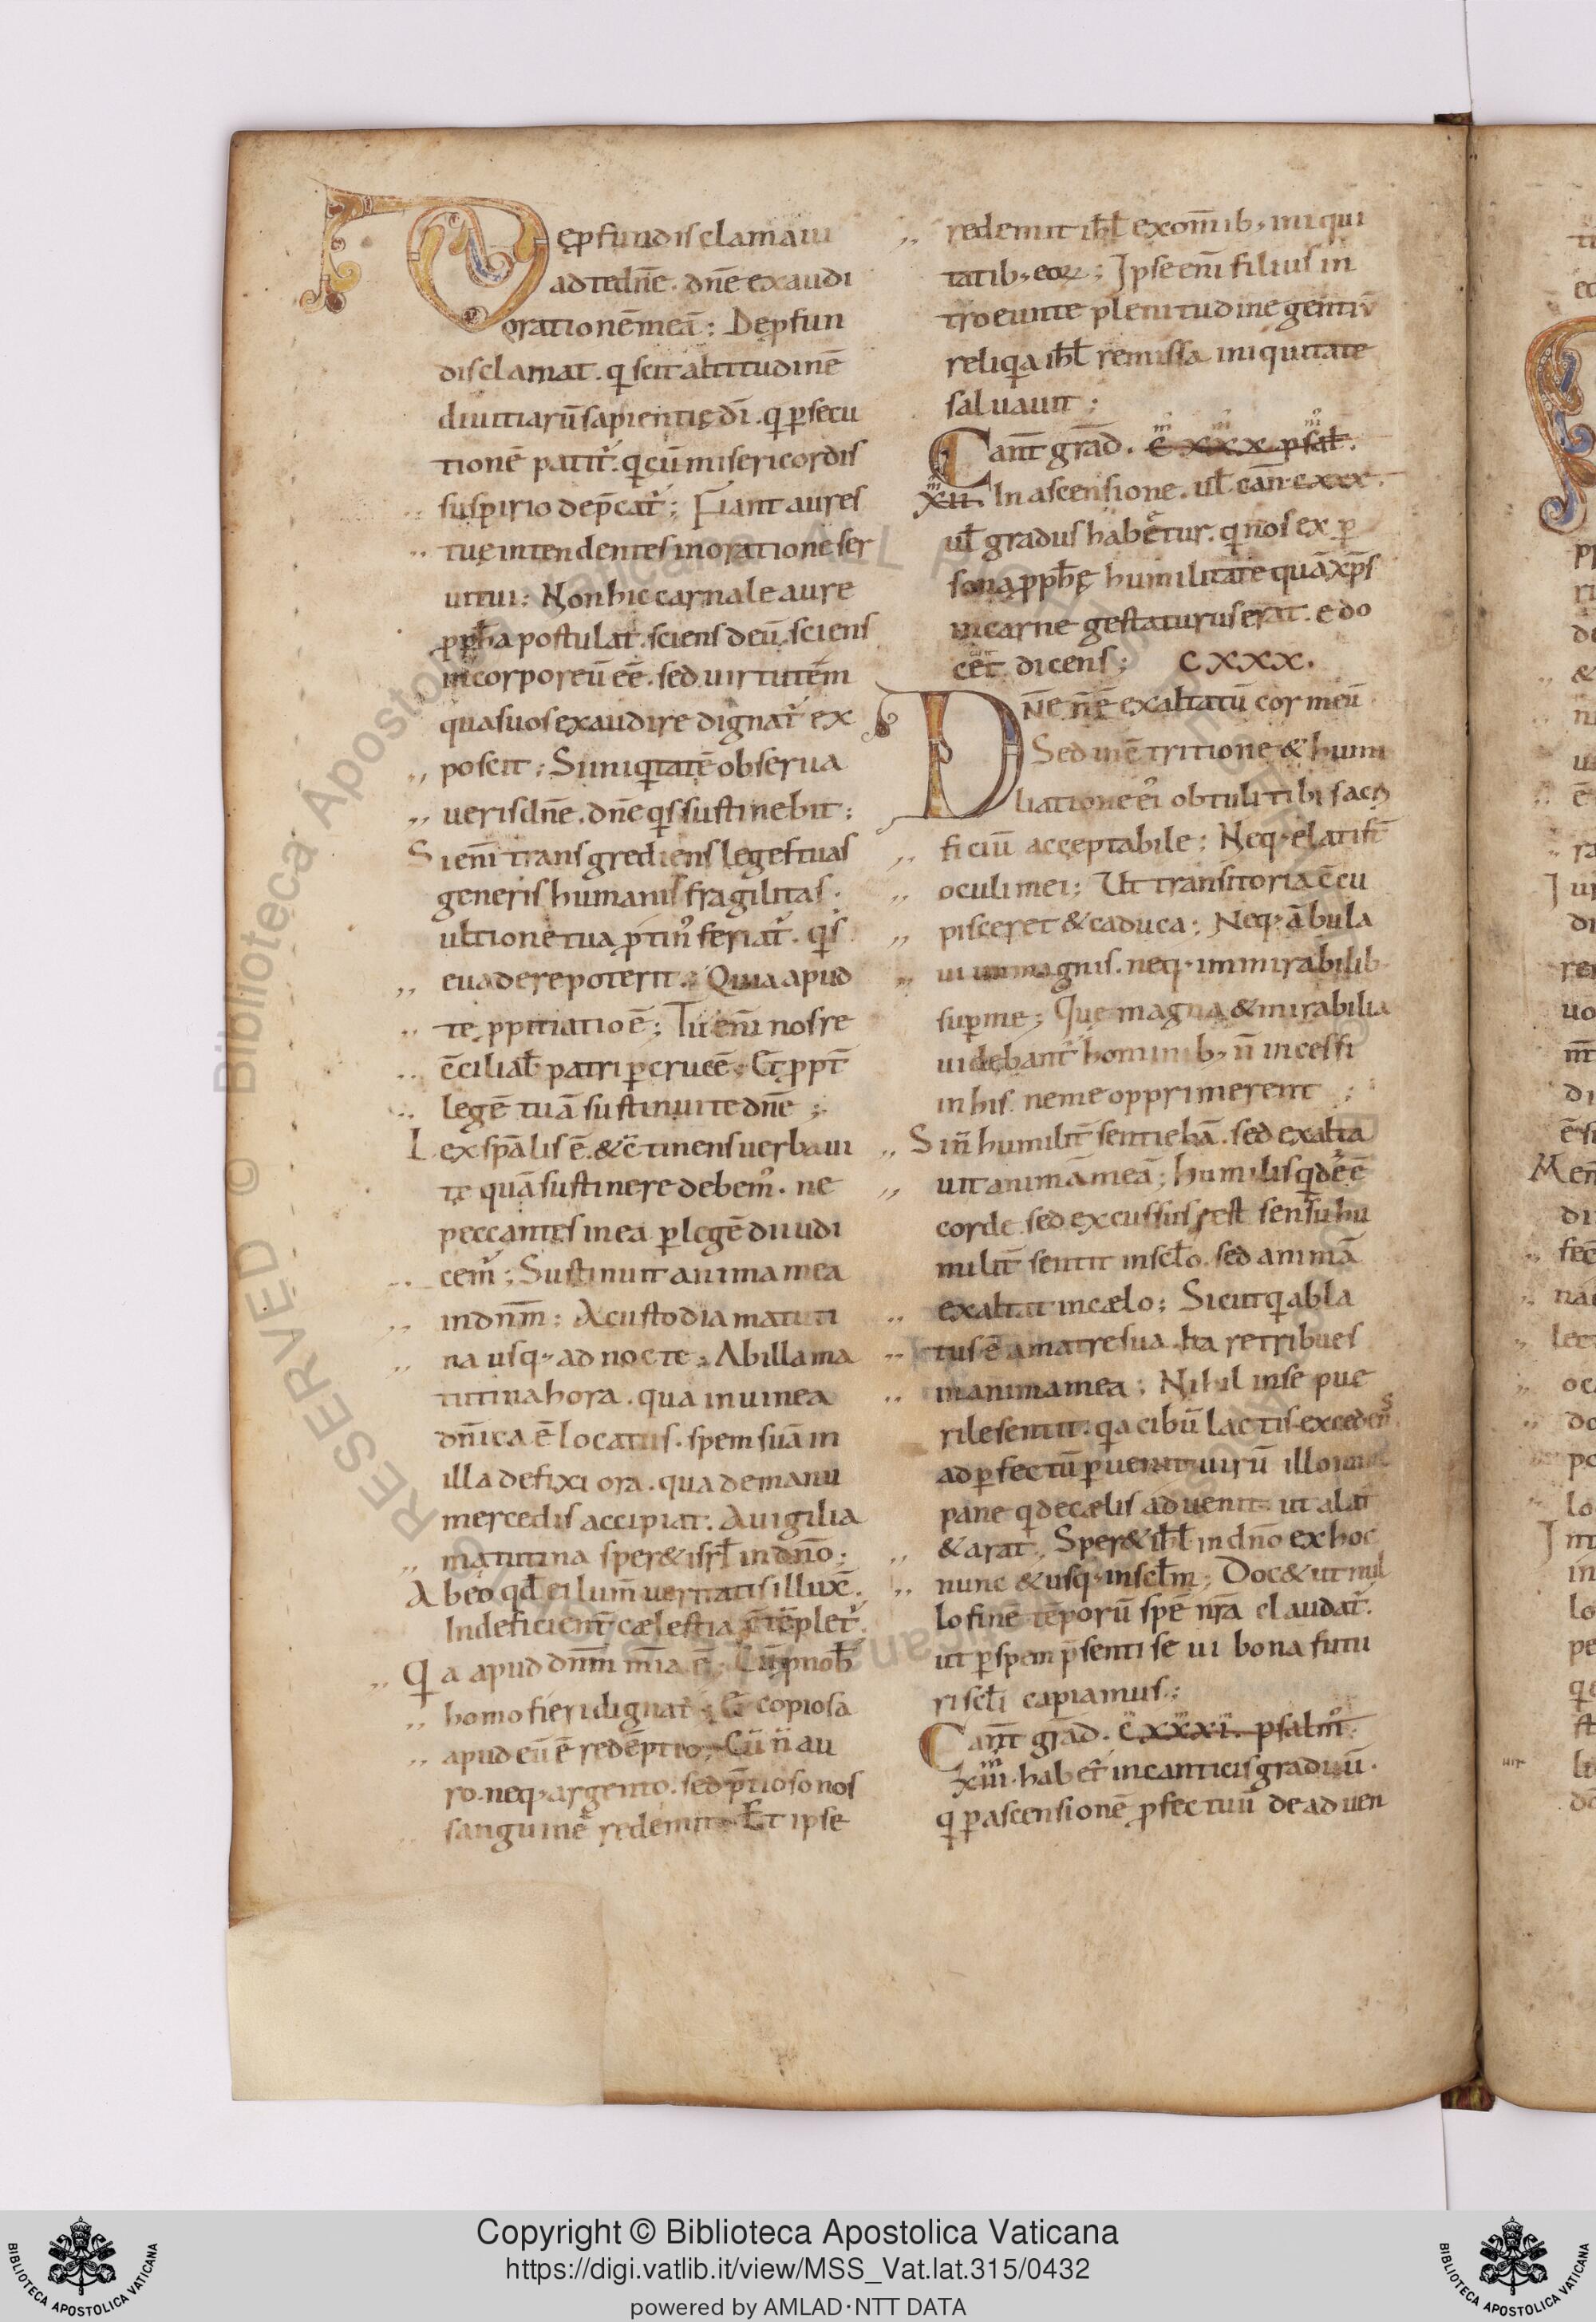 Dępfundis clamaui
ad te dñe. dñe exaudi
orationē meā; Dępfun
dis clamat. q scit altitudinē
diuitiarū sapientię dī. q psecu
tionē patit᷑. q cū misericordis
suspirio dep̄cat᷑; Fiant aures
tuę intendentes in oratione ser
ui tui; Non hic carnale aure
ppħa postulat. sciens deū. sciens
incorporeū eē. sed uirtutēm
qua suos exaudire dignat᷑ ex
poscit; Si iniqitatē obserua
ueris dñe. dñe qis sustinebit;
Si enī transgrediens leges tuas
generis humanis fragilitas.
ultione tua ptin᷒ feriat᷑. qis
euadere poterit. Quia apud
te ppitiatio ē; Tu enī nos re
c̄ciliab̄ patri p crucē; Et ppt̄
legē tuā sustinui te dñe;
Lex spālis ē. & c̄tinens uerba ui
tę quā sustinere debem᷒. ne
peccantes in ea p legē diiudi
cem᷒; Sustinuit anima mea
in dn̄m; A custodia matuti
na usq; ad nocte; Ab illa ma
tutina hora. qua in uinea
dñica ē locatus. spem suā in
illa defixi ora. qua de manu
mercedis accipiat. A uigilia
matutina sper& isrł in dn̄o;
Ab eo qđ ei lum̄ ueritatis illuxē.
Indeficient̄ cælestia c̄tēplet᷑.
Qa apud dn̄m m̄ia ē; Cū p nob̄
homo fieri dignat᷑; Et copiosa
apud eū ē redēptio; Cū ñ au
ro. neq; argento. sed p̄tioso nos
sanguinē redemit. Et ipse
redemit iħł ex om̄ib; iniqui
tatib; eoꝝ; Ipse enī filius in
troeunte plenitudine gentiū
reliqa iħł remissa iniquitate
saluauit;
Cant̄ grad̄. c xxx. psał.
xii. In ascensione. uł can̄ cxxx.
uł gradus habētur. q nos ex p
sona pphę humilitate quā xp̄s
in carne gestaturus erat. edo
cēt dicens; cxxx.
Dn̄e n̄ ē exaltatū cor meū
Sed in c̄tritione & humi
liatione ei obtuli tibi sacri
ficiū acceptabile; Neq; elati st̄
oculi mei; Ut transitoria c̄cu
pisceret & caduca; Neq; ābula
ui in magnis. neq; in mirabilib;
sup me; Que magna & mirabilia
uidebant᷑ hominib; n̄ incessi
in his. ne me opprimerent;
Si n̄ humilit̄ sentiebā. sed exalta
ui animā meā; humilis qdē ē
corde. sed excussus est sensu hu
milit̄ sentit in scło. sed animā
exaltat in cælo; Sicut qi abla
tus ē a matre sua. ita retribues
in anima mea; Nihil in se pue
rile sentit. qa cibū lactis excedens
ad pfectū puenit uirū illo
pane q de cælis aduenit. ut alat᷑
& arat. Sper& iħł in dn̄o ex hoc
nunc & usq; in scłm; Doc& ut nul
lo finē tēporū spē n̄ra claudat᷑.
ut p spem p̄senti se ui bona futu
ri scłi capiamus;
Cant̄ grad̄. c xxxi. psalm᷒.
xiii. habet᷑ in canticis graduū.
q p ascensionē pfectuū de aduen
Copyright © Biblioteca Apostolica Vaticana
https://digi.vatlib.it/view/MSS_Vat.lat.315/0432
powered by AMLAD·NTT DATA
BIBLIOTECA APOSTOLICA VATICANA
BIBLIOTECA APOSTOLICA VATICANA